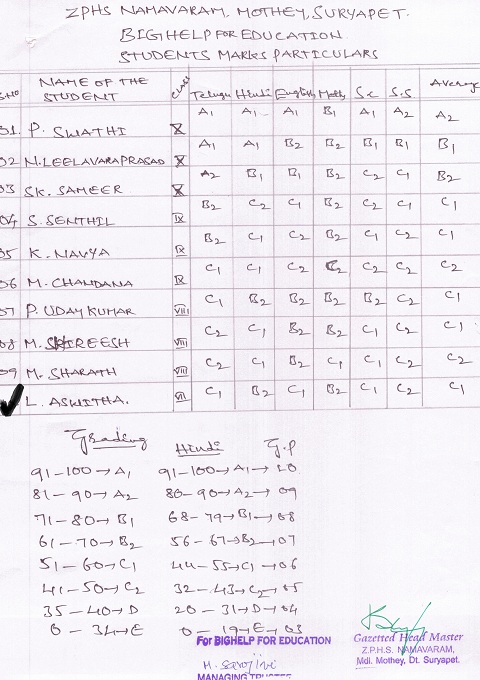 ZPHS NAMAVARAM, MOTHEY, SURYAPET.
BIGHELP FOR EDUCATION
STUDENTS MARKS PARTICULARS
NAME OF THE STUDENT Telugu Hindi English Maths S.c S.S Average
01. P. SWATHI X A1 A1 A1 B1 A1 A2 A2
02 N. LEELAVARAPRASAD X A1 A1 B2 B2 B1 B1 B1
03 SK. SAMEER X A2 B1 B1 B2 C2 C1 B2
04 S. SENTHIL IX B2 C2 C1 B2 C2 C1 C1
05 K. NAVYA IX B2 C1 C2 B2 C1 C2 C1
06 M. CHANDANA IX C1 C1 C2 C2 C2 C2 C2
07 P. UDAY KUMAR VIII C1 B2 B2 B2 B2 C2 C1
08 M. SHIREESH VIII C2 C1 B2 B2 C1 C2 C1
09 M. SHARATH VIII C2 C1 B2 C1 C1 C2 C2
L. ASWITHA. VII C1 B2 C1 B2 C1 C2 C1
Grading Hindi G.P
91-100→A1 91-100→A1→10
81-90→A2 80-90→A2→09
71-80→B1 68-79→B1→08
61-70→B2 56-67→B2→07
51-60→C1 44-55→C1→06
41-50→C2 32-43→C2→05
35-40→D 20-31→D→04
0-34→E 0-19→E→03
For BIGHELP FOR EDUCATION
M. Sarojini
MANAGING TRUSTEE
Gazetted Head Master
Z.P.H.S. NAMAVARAM,
Mdl. Mothey, Dt. Suryapet.